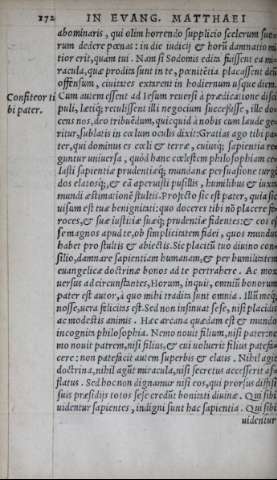 172 IN EVANG. MATTHAEI
abominaris, qui olim horrendo supplicio scelerum suo-
rum dedere pœnas: in die iudicij & horũ damnatio mi
tior erit, quàm tui. Nam si Sodomis edita fuissent ea mi-
racula, quæ prodita sunt in te, pœnitẽtia placassent deũ
offensum, ciuitates extarent in hodiernum usque diem.
Confiteor ti Cum autem essent ad Iesum reuersi à prædicatione disci
bi pater. puli, lætiq; retulissent illi negocium successisse, ille do-
cens nos, deo tribuẽdum, quicquid à nobis cum laude ge-
ritur, sublatis in cœlum oculis dixit: Gratias ago tibi pa-
ter, qui dominus es cœli & terræ, cuiusq; sapientia re-
guntur uniuersa, quòd hanc cœlestem philosophiam ce-
lasti sapientiæ prudentiæq; mundanæ persuasione turgi
dos elatosq́;, & eã aperuisti pusillis, humilibus & iuxta
mundi æstimationẽ stultis. Profecto sic est pater, quia sic
uisum est tuæ benignitati: quo doceres tibi nõ placere fe-
roces, & suæ iustitiæ suæq; prudentiæ fidentes: & eos es
se magnos apud te, ob simplicitatem fidei, quos mundus
habet pro stultis & abiectis. Sic placitũ tuo diuino con-
silio, damnare sapientiam humanam, & per humilitatem
euangelicæ doctrinæ bonos ad te pertrahere. Ac mox
uersus ad circunstantes, Horum, inquit, omniũ bonorum
pater est autor, à quo mihi tradita sunt omnia. Illũ meq́;
nosse, uera felicitas est. Sed non insinuat sese, nisi placidis
ac modestis animis. Hæc arcana quædam est & mundo
incognita philosophia. Nemo nouit filium, nisi pater: ne
mo nouit patrem, nisi filius, & cui uoluerit filius patefa-
cere: non patefacit autem superbis & elatis. Nihil agit
doctrina, nihil agũt miracula, nisi secretus accesserit af-
flatus. Sed hoc non dignamur nisi eos, qui prorsus diffisi
suis præsidijs totos sese credũt bonitati diuinæ. Qui sibi
uidentur sapientes, indigni sunt hac sapientia. Qui sibi
uidentur